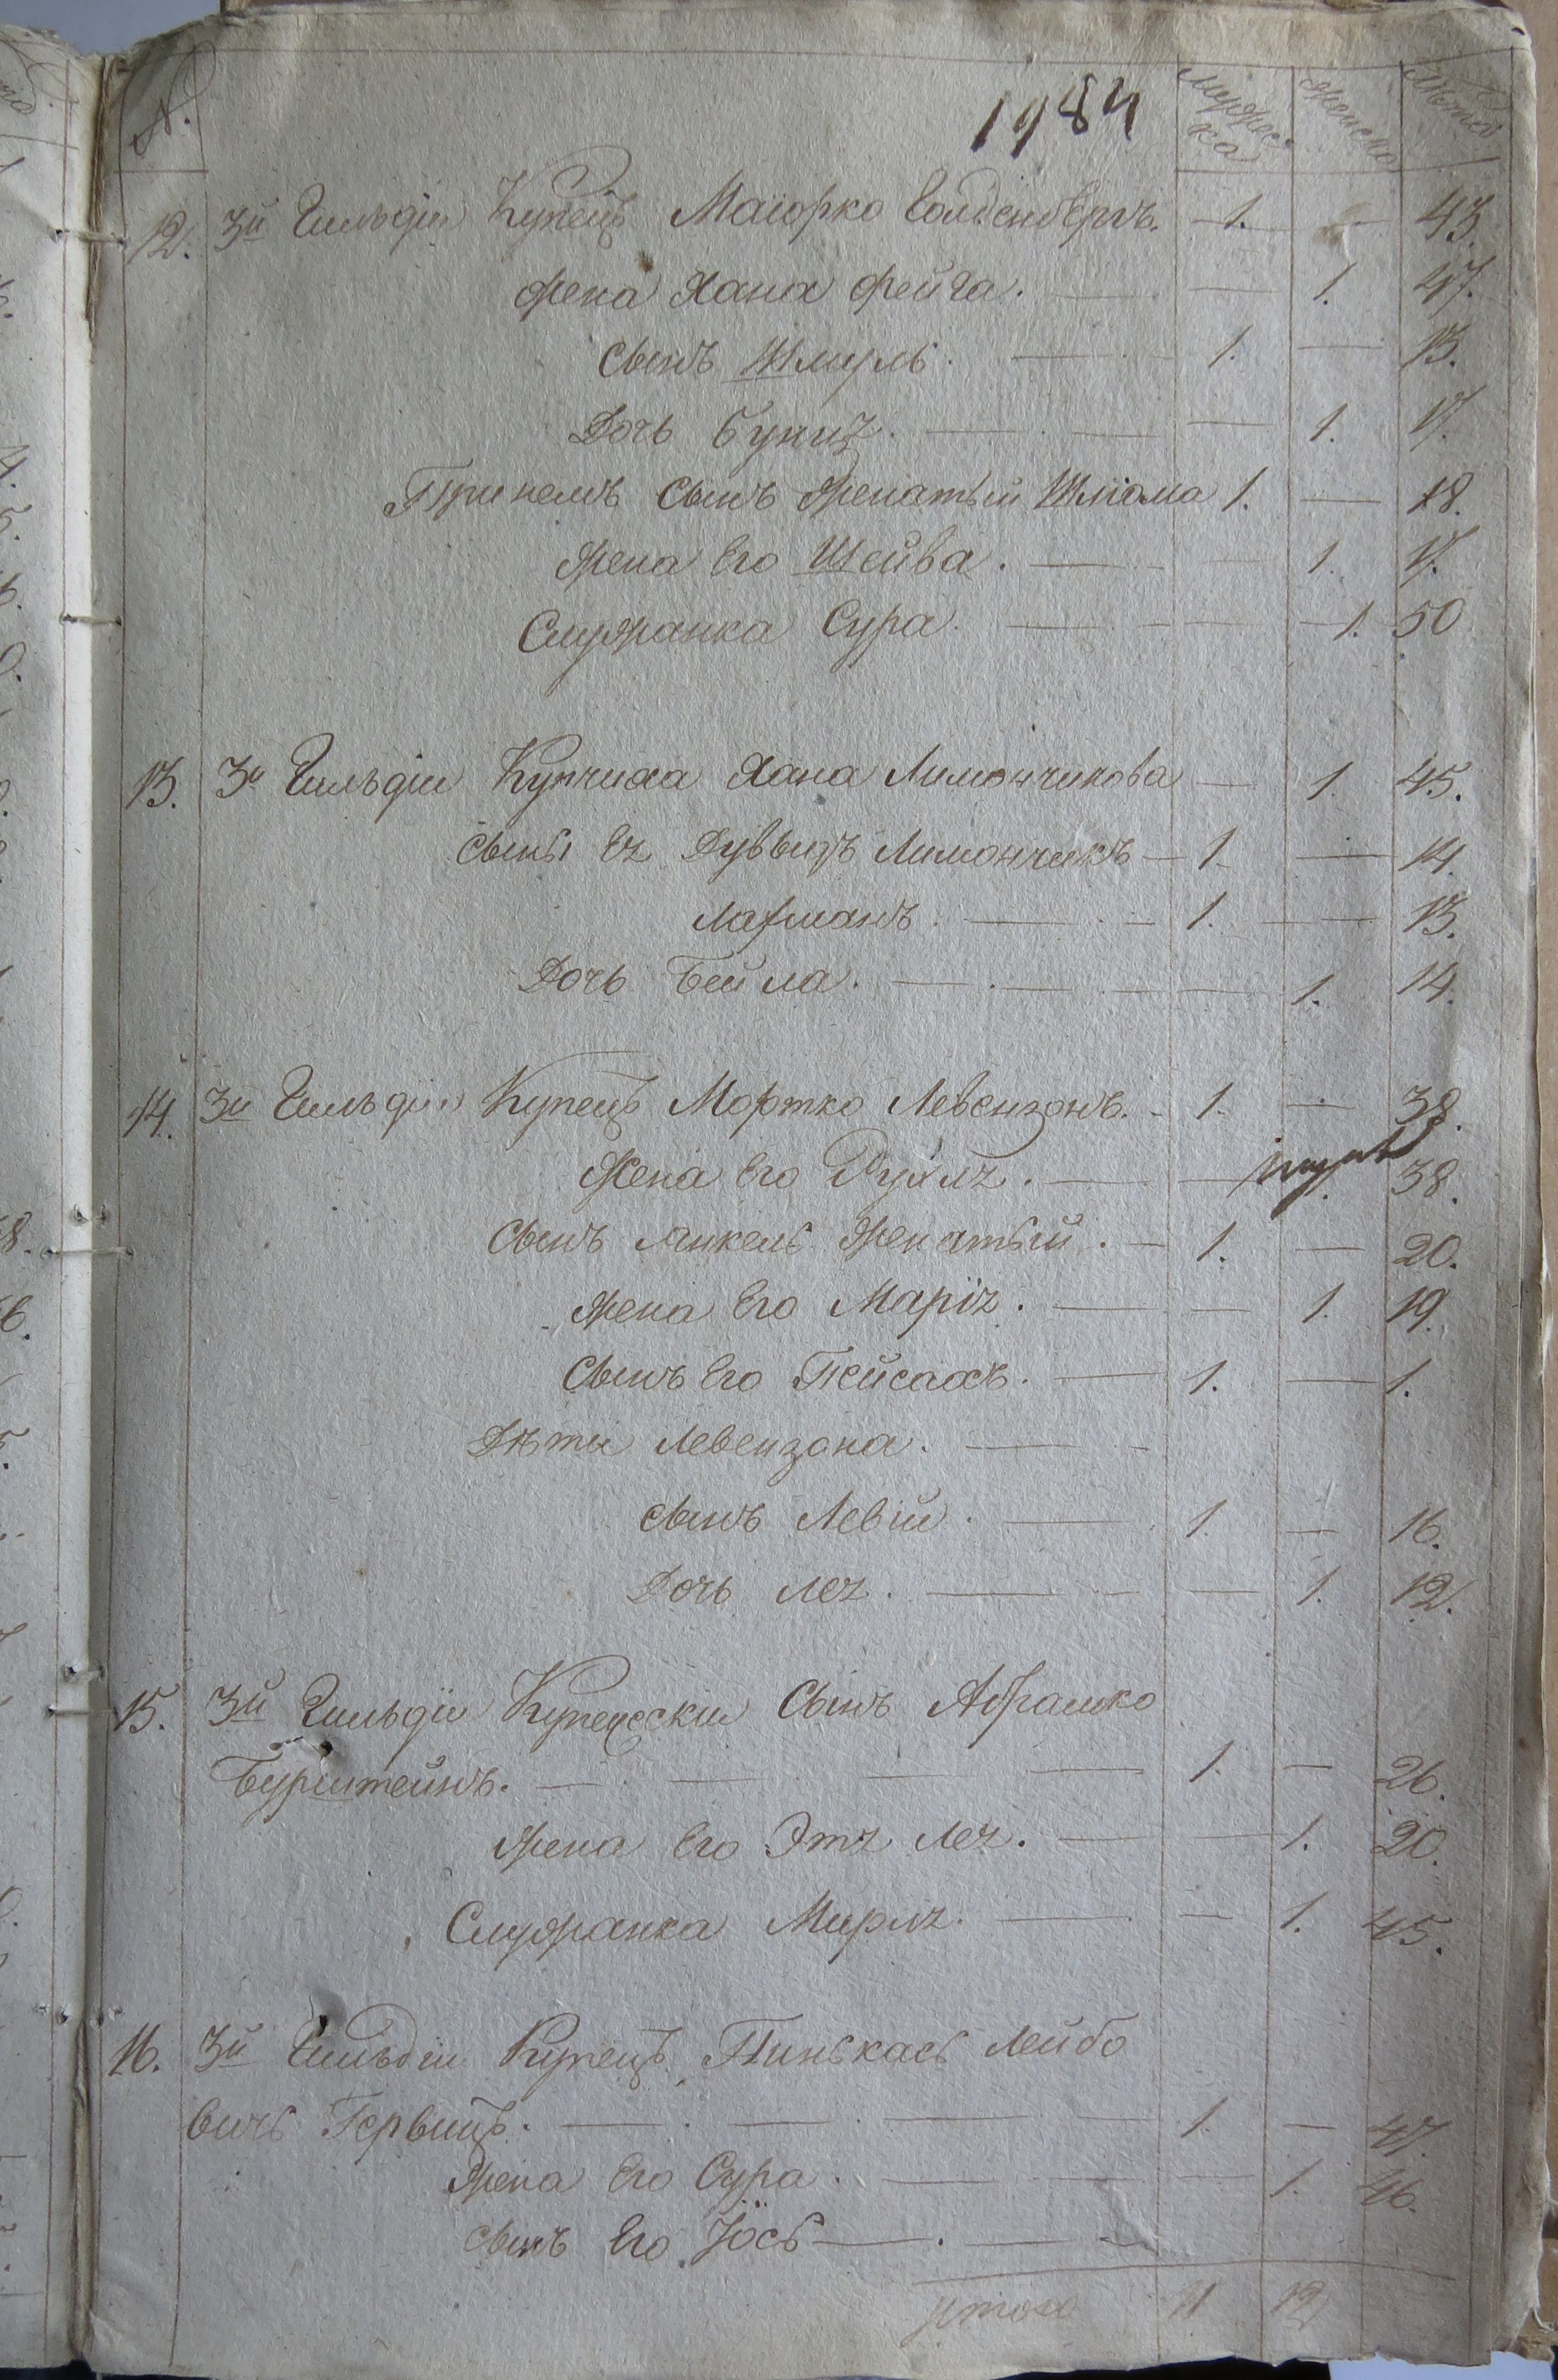 №.
1984
мужес-
ка
женска
Лѣта
12. 3й Гильдіи Купецъ Маіорко Волденбергъ. — 1. — 43.
жена Хана Фейга. — — 1. 47.
сынъ Шмуль. — 1. — 13.
Дочь Буня. — — — 1. 17.
Принелъ сынъ женатый Шліома 1. — 18.
жена Его Шейва. — — 1. 17.
Служанка Сура. — — — 1. 50
13. 3й Гильдіи Купчиха Хана Лимончикова — 1. 45.
сыны Ея Дувыдъ Лимончикъ — 1. — 14.
Лахманъ. — — 1. — 13.
Дочь Бейла. — — — 1. 14.
14. 3й Гильдіи Купецъ Мортко Левензонъ. — 1. — 38.
Жена Его Рухля. — — 38.
Сынъ Янкель женатый. — 1. — 20.
жена Его Марія. — — 1. 19.
Сынъ Его Пейсахъ. — 1. — 1.
Дѣти Левензона. — —
сынъ Левій. — 1. — 16.
Дочь Лея. — — — 1. 12.
15. 3й Гильдіи Купеческій Сынъ Абрамко
Бурштейнъ. — — — — 1. — 26.
жена Его Этя Лея. — — 1. 20.
Служанка Мирля. — — 1. 45.
16. 3й Гильдіи Купецъ Пинькась Лейбо
вичь Гервицъ. — — — — 1. — 47.
жена Его Сура. — — — 1. 46.
сынъ Его Іось — . —
итого 11 12